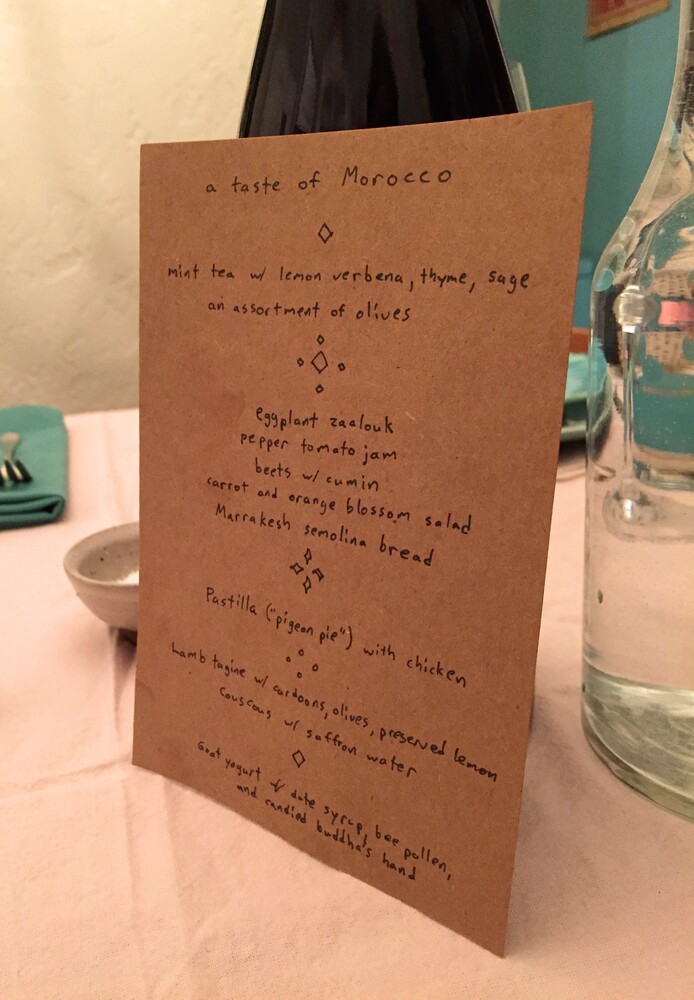 a taste of Morocco
mint tea w/ lemon verbena, thyme, sage
an assortment of olives
eggplant zaalouk
pepper tomato jam
beets w/ cumin
carrot and orange blossom salad
Marrakesh semolina bread
Pastilla ("pigeon pie") with chicken
Lamb tagine w/ cardoons, olives, preserved lemon
Couscous w/ saffron water
Goat yogurt w/ date syrup, bee pollen,
and candied buddha's hand